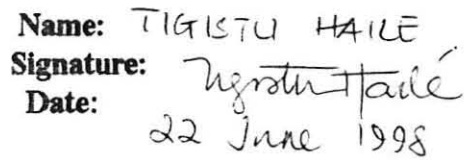 Name: TIGISTU HAILE
Signature: Tigistu Hailé
Date:
22 June 1998